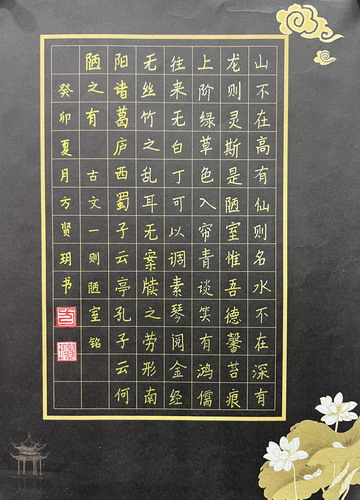 山不在高有仙则名水不在深有
龙则灵斯是陋室惟吾德馨苔痕
上阶绿草色入帘青谈笑有鸿儒
往来无白丁可以调素琴阅金经
无丝竹之乱耳无案牍之劳形南
阳诸葛庐西蜀子云亭孔子云何
陋之有 古文一则陋室铭
癸卯夏月方贤玥书